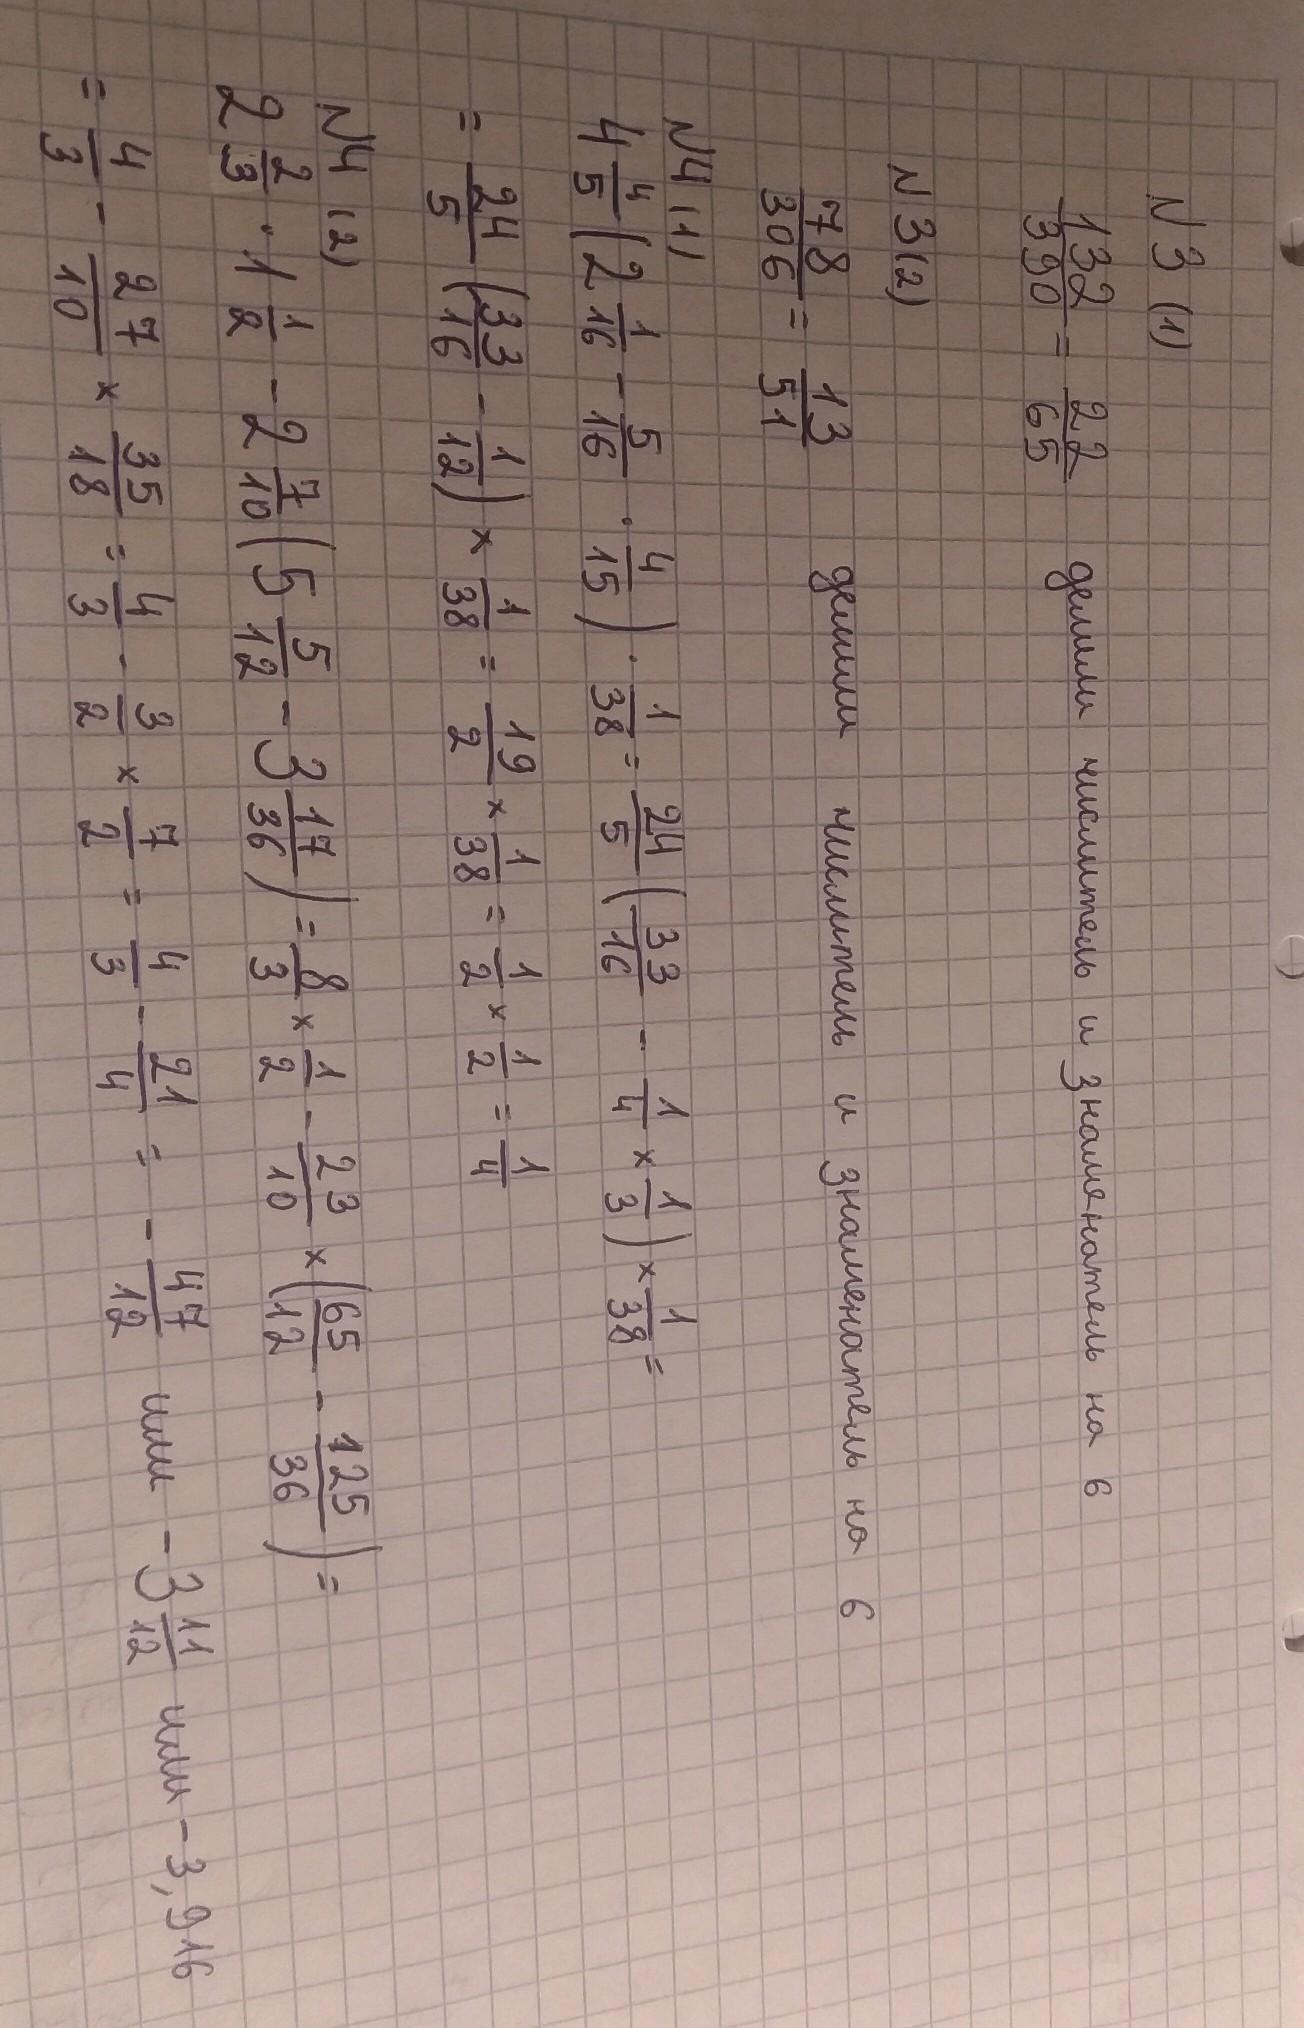 N 3 (1)
132/390 = 22/65 делим числитель и знаменатель на 6
N 3 (2)
78/306 = 13/51 делим числитель и знаменатель на 6
N4 (1)
4 4/5 (2 1/16 - 5/16 · 4/15) · 1/38 = 24/5 (33/16 - 1/4 × 1/3) × 1/38 =
= 24/5 (33/16 - 1/12) × 1/38 = 19/2 × 1/38 = 1/2 × 1/2 = 1/4
N4 (2)
2 2/3 · 1 1/2 - 2 7/10 (5 5/12 - 3 17/36) = 8/3 × 1/2 - 23/10 × (65/12 - 125/36) =
= 4/3 - 27/10 × 35/18 = 4/3 - 3/2 × 7/2 = 4/3 - 21/4 = - 47/12 или - 3 11/12 или - 3,916